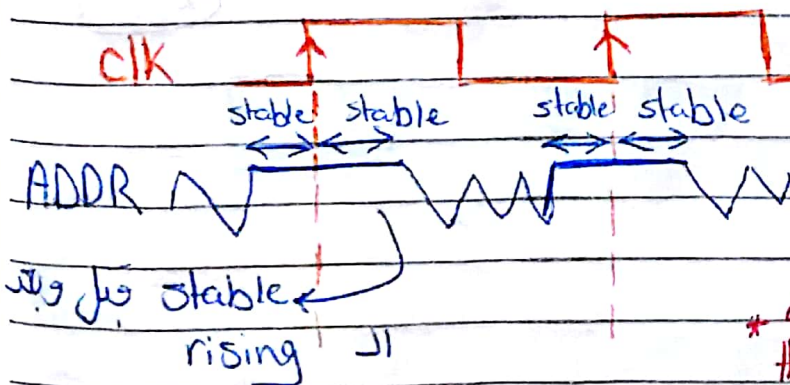 clk
stable stable stable stable
ADDR
stable قبل وبعد
ال rising
*